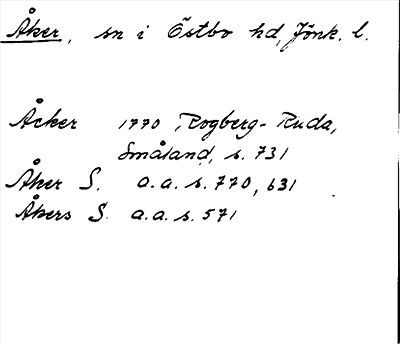 Åker, sn i Östbo hd, Jönk. l.
Åcker 1770 Rogberg-Ruda,
Småland, s. 731
Åker S. a.a. s. 770, 631
Åkers S. a.a. s. 571